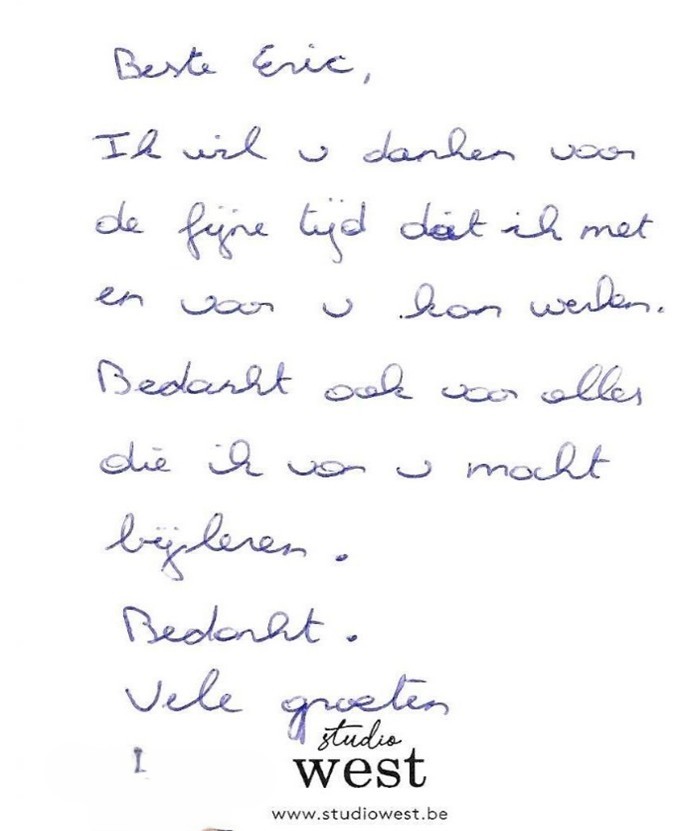 Beste Eric,
Ik wil u danken voor
de fijne tijd dat ik met
en voor u kon werken.
Bedankt ook voor alles
die ik van u mocht
bijleren.
Bedankt.
Vele groeten
I
studio
west
www.studiowest.be